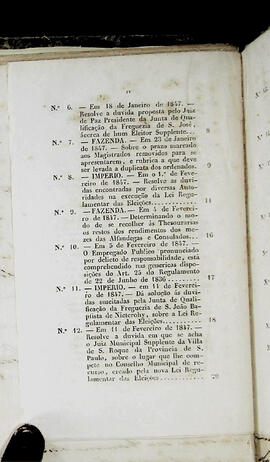 IV
N.º 6. — Em 18 de Janeiro de 1847. —
Resolve a duvida proposta pelo Juiz
de Paz Presidente da Junta de Qua-
lificação da Freguezia de S. José,
ácerca de hum Eleitor Supplente. 8
N.º 7. — FAZENDA. — Em 23 de Janeiro
de 1847. — Sobre o prazo marcado
aos Magistrados removidos para se
apresentarem, e rubrica a que deve
ser levada a duplicata dos ordenados. 9
N.º 8. — IMPERIO. — Em o 1.º de Feve-
reiro de 1847. — Resolve as duvi-
das encontradas por diversas Auto-
ridades na execução da Lei Regu-
lamentar das Eleições. 11
N.º 9. — FAZENDA. — Em 4 de Feverei-
ro de 1847. — Determinando o mo-
do de se recolher ás Thesourarias
os restos dos rendimentos dos me-
zes das Alfandegas e Consulados. 16
N.º 10. — Em 5 de Fevereiro de 1847. —
O Empregado Publico pronunciado
por delicto de responsabilidade, está
comprehendido nas genericas dispo-
sições do Art. 25 do Regulamento
de 22 de Junho de 1836. 17
N.º 11. — IMPERIO. — em 11 de Feverei-
ro de 1847. — Dá solução ás duvi-
das suscitadas pela Junta de Quali-
ficação da Freguezia de S. João Ba-
ptista de Nictcrohy, sobre a Lei Re-
gulamentar das Eleições. 18
N.º 12. — Em 11 de Fevereiro de 1847. —
Resolve a duvida em que se acha
o Juiz Municipal Supplente da Villa
de S. Roque da Provincia de S.
Paulo, sobre o lugar que lhe com-
pete no Conselho Municipal de re-
curso, creado pela nova Lei Regu-
lamentar das Eleições. 20